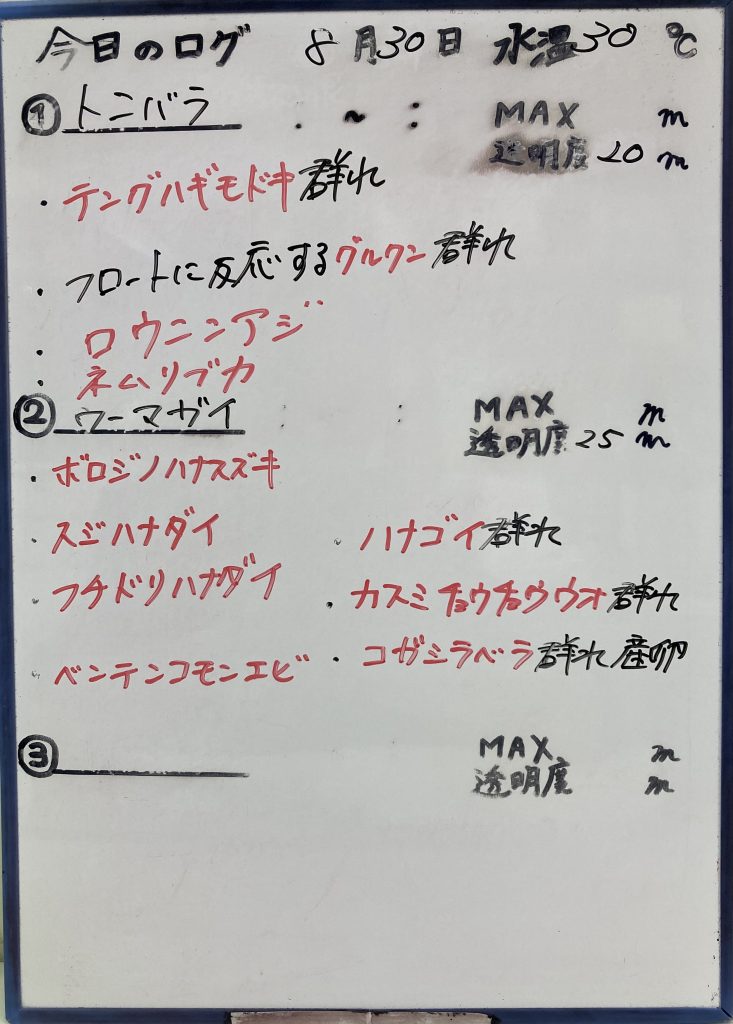 今日のログ 8月30日 水温30℃
① トンバラ : ~ : MAX m
透明度 20 m
・テングハギモドキ群れ
・フロートに反応するグルクン群れ
・ロウニンアジ
・ネムリブカ
② ウーマガイ : MAX m
透明度 25 m
・ボロジノハナスズキ
・スジハナダイ ・ハナゴイ群れ
・フチドリハナダイ ・カスミチョウチョウウオ群れ
・ベンテンコモンエビ ・コガシラベラ群れ産卵
③ MAX m
透明度 m